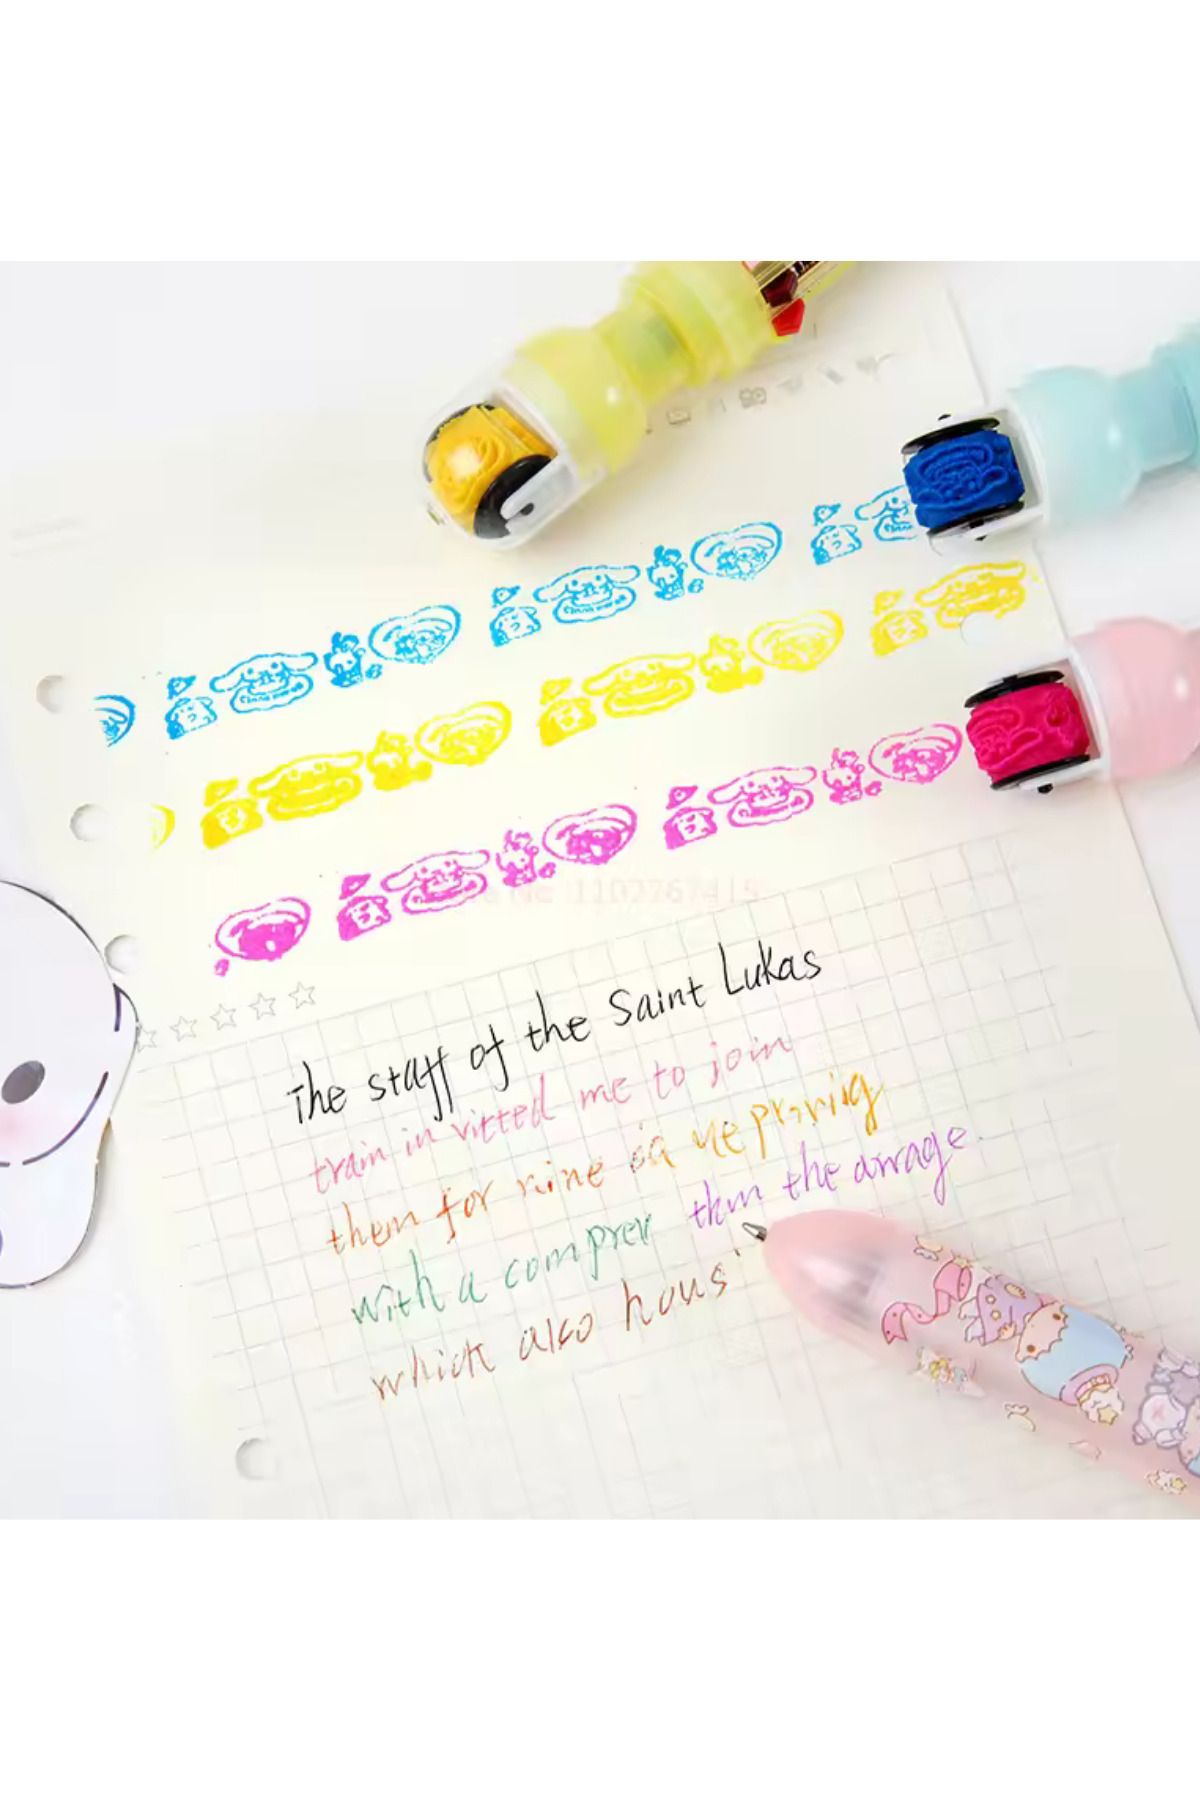 The staff of the Saint Lukas
train in vitted me to join
them for nine
with a comprev thm the arrage
which also hous